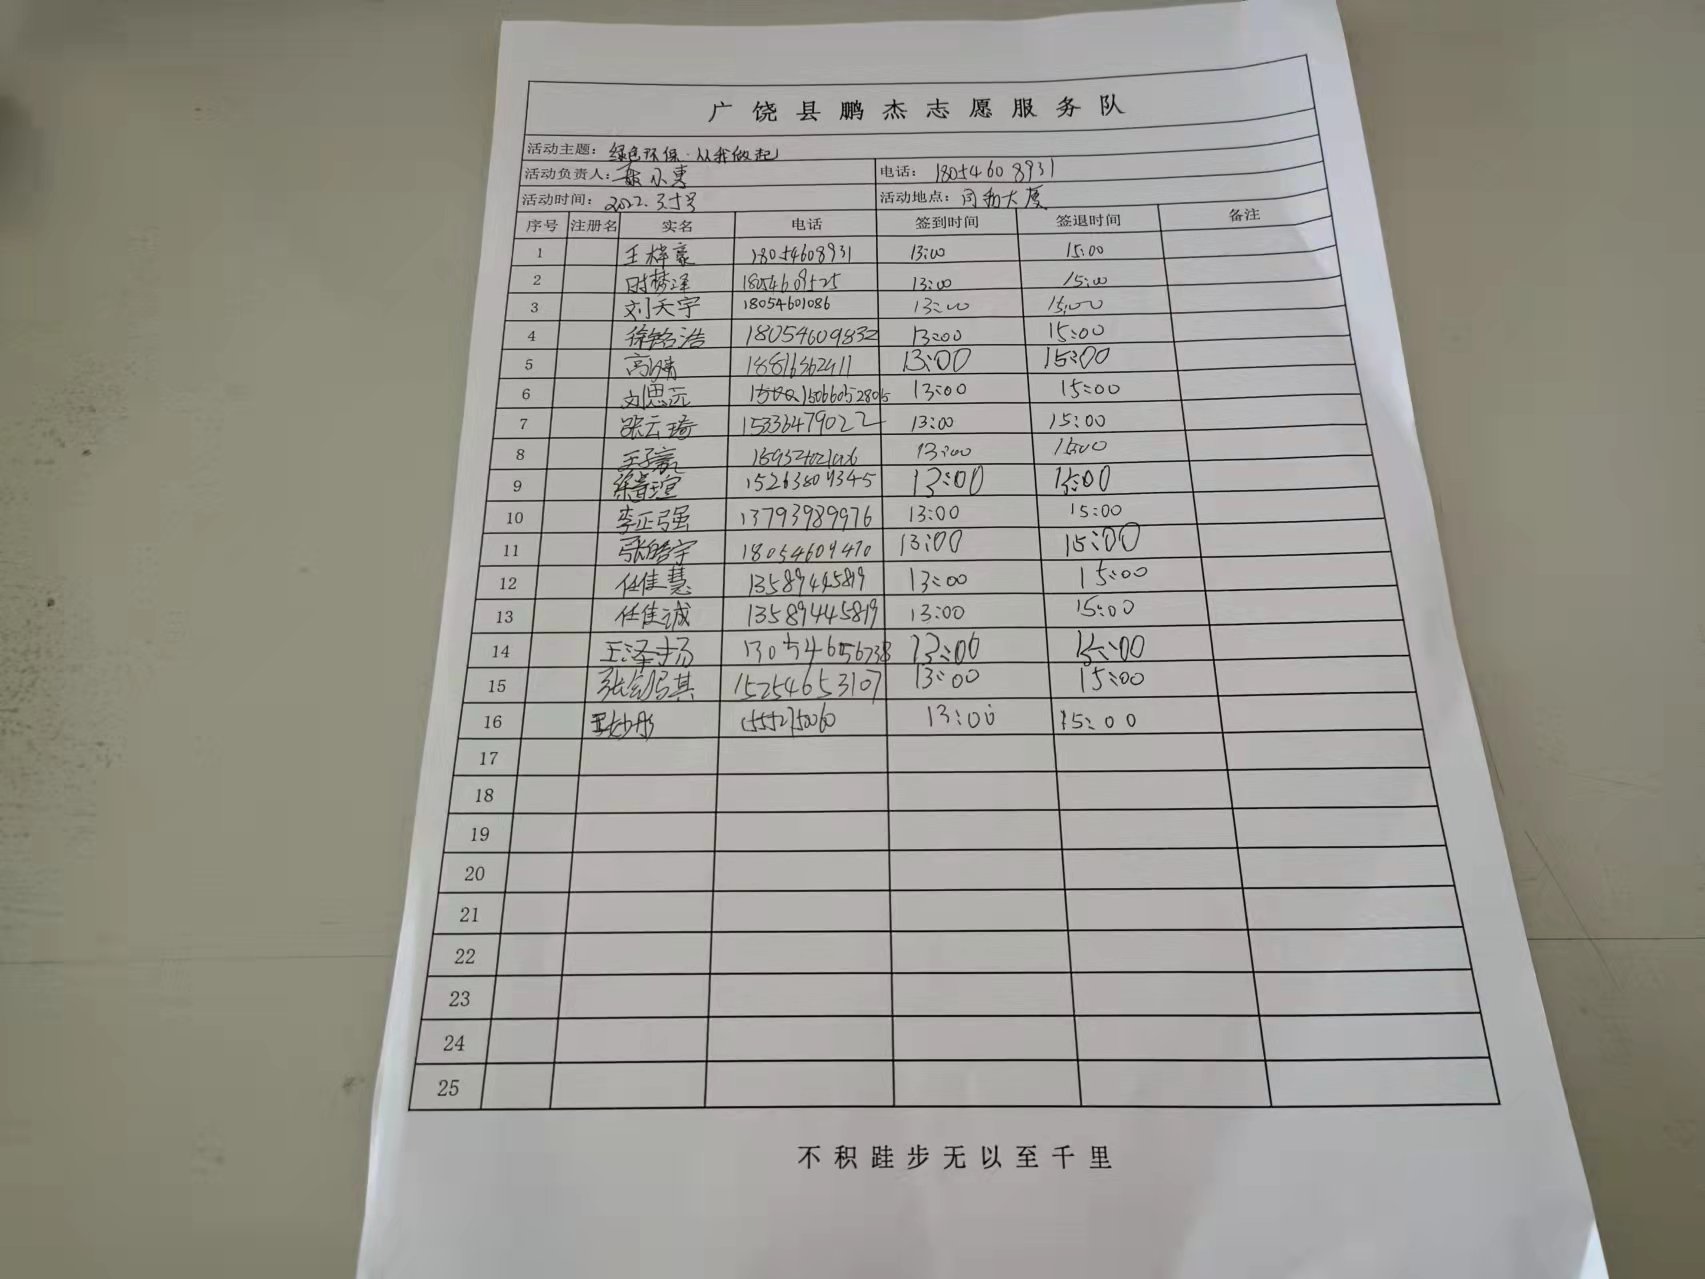 广饶县鹏杰志愿服务队
活动主题：绿色环保·从我做起
活动负责人： 电话：18054608931
活动时间：2022.3.5号 活动地点：同和大厦
序号 注册名 实名 电话 签到时间 签退时间 备注
1 王梓豪 18054608931 13:00 15:00
2 时梦泽 18054609525 13:00 15:00
3 刘天宇 18054601086 13:00 15:00
4 徐铭浩 18054609832 13:00 15:00
5 高倩 13:00 15:00
6 刘思元 15066052805 13:00 15:00
7 张云琦 15336479022 13:00 15:00
8 王子豪 13:00 15:00
9 15263809345 13:00 15:00
10 李正强 13793989976 13:00 15:00
11 张皓宇 18054609470 13:00 15:00
12 任佳慧 13589445819 13:00 15:00
13 任佳诚 13589445819 13:00 15:00
14 王泽扬 13054656738 13:00 15:00
15 15254653107 13:00 15:00
16 13:00 15:00
17
18
19
20
21
22
23
24
25
不积跬步无以至千里